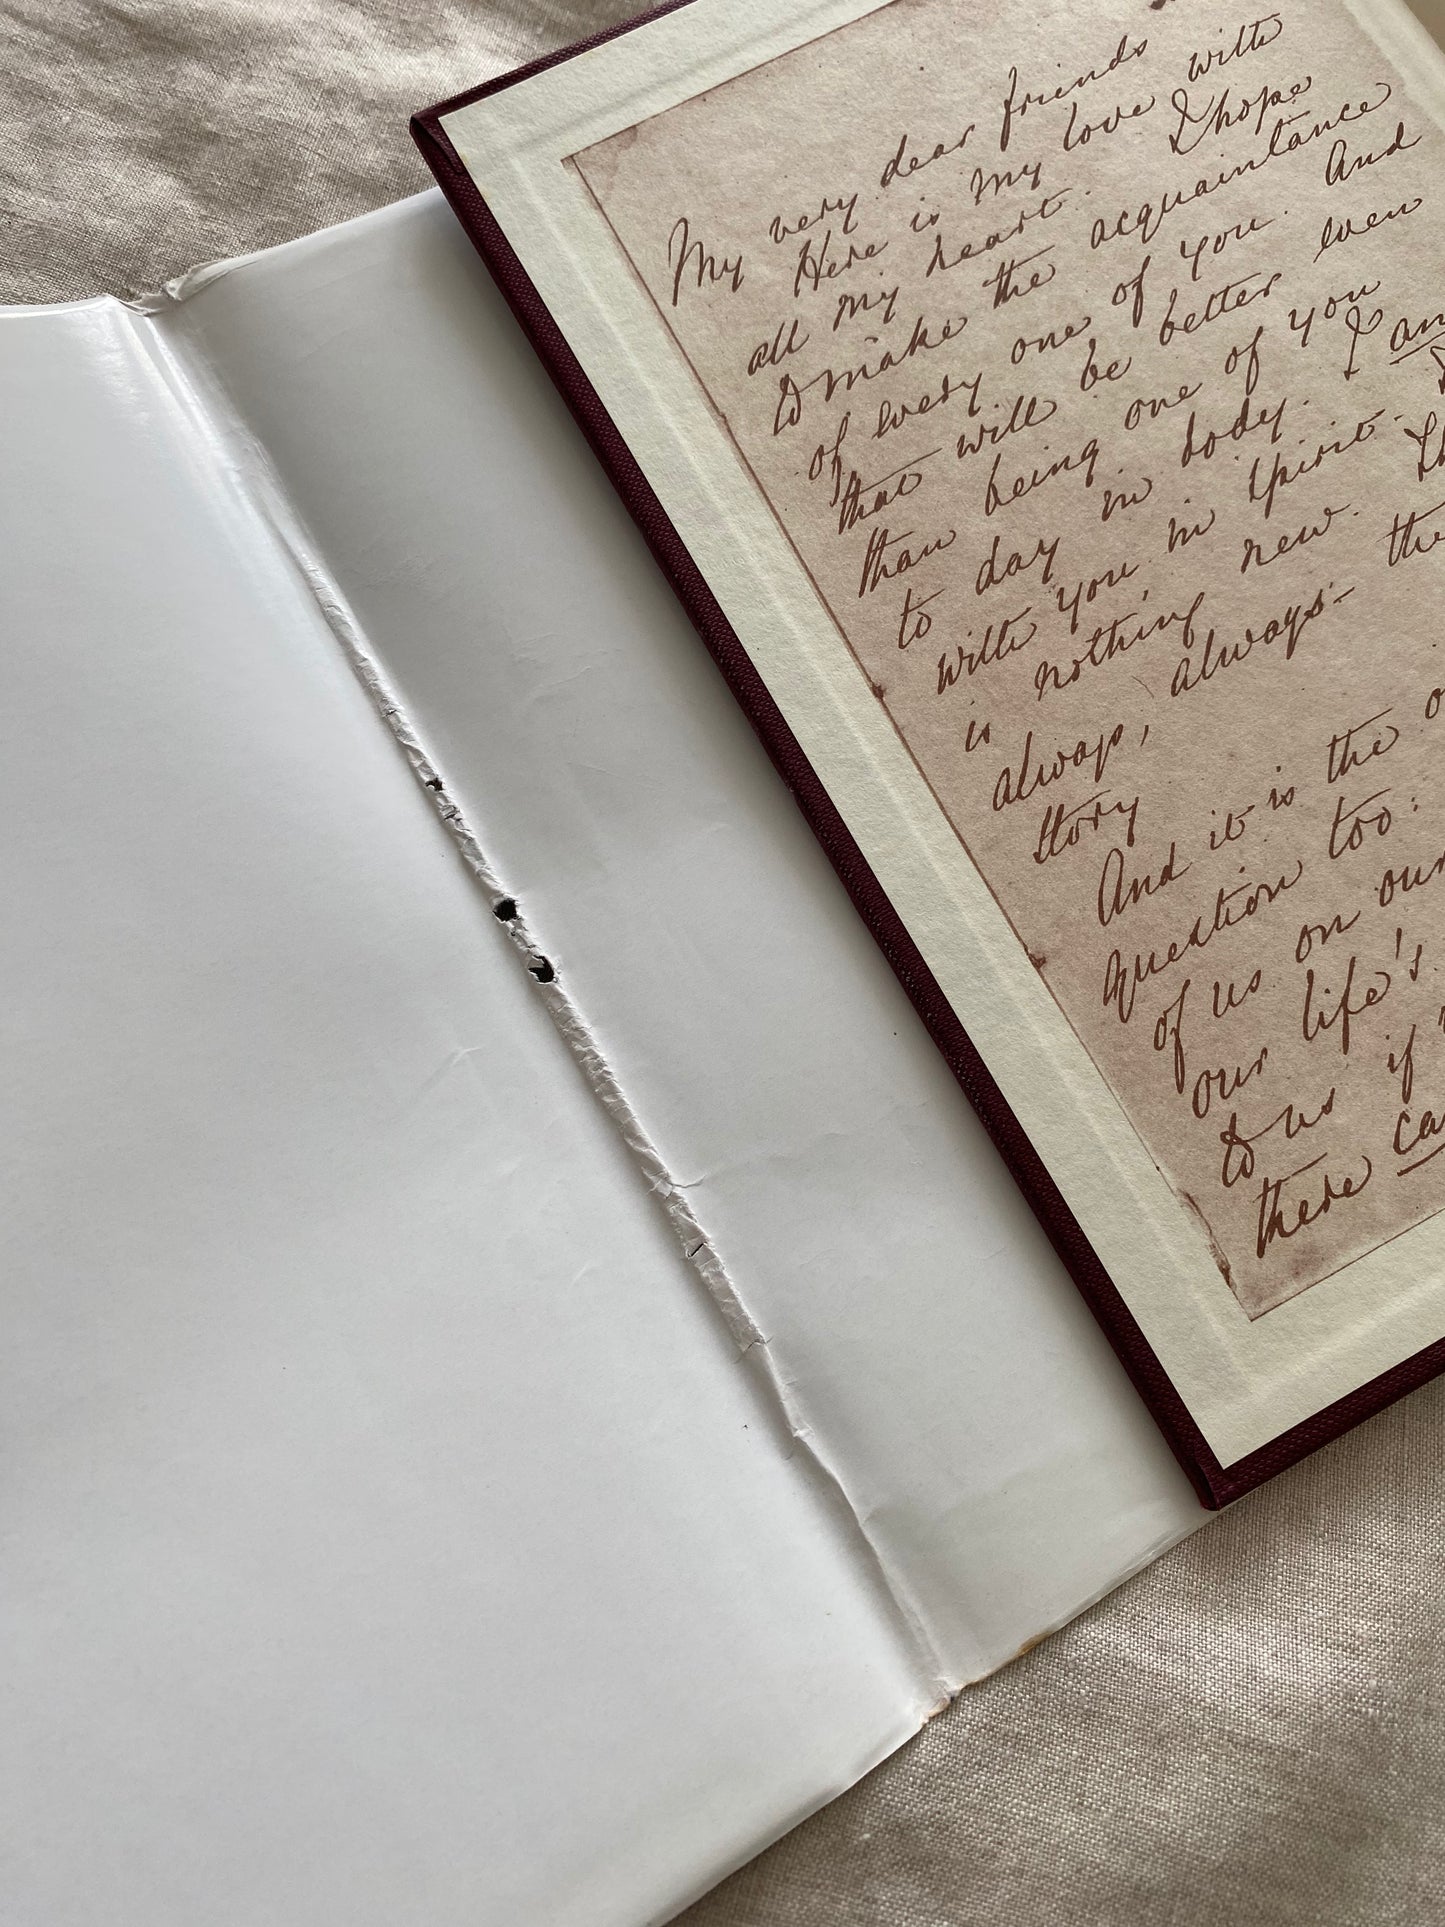 My very dear friends
Here is my love with
all my heart. I hope
to make the acquaintance
of every one of you. And
that will be better even
than being one of you
to day in body. I am
with you in spirit.
is nothing new.
always, always - the
story
And it is the
question too:
of us on our
our life's
to us if
there